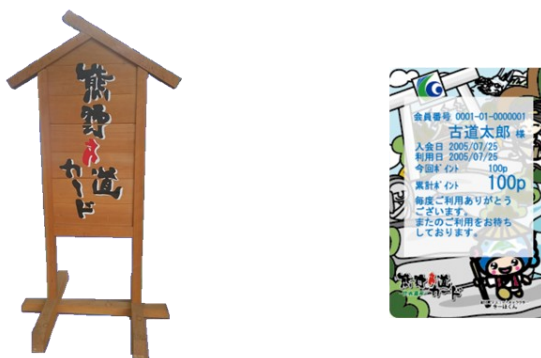 熊野古道
カード
会員番号 0001-01-0000001
古道太郎 様
入会日 2005/07/25
利用日 2005/07/25
今回ﾎﾟｲﾝﾄ 100p
累計ﾎﾟｲﾝﾄ 100p
毎度ご利用ありがとう
ございます。
またのご利用をお待ち
しております。
熊野古道
カード